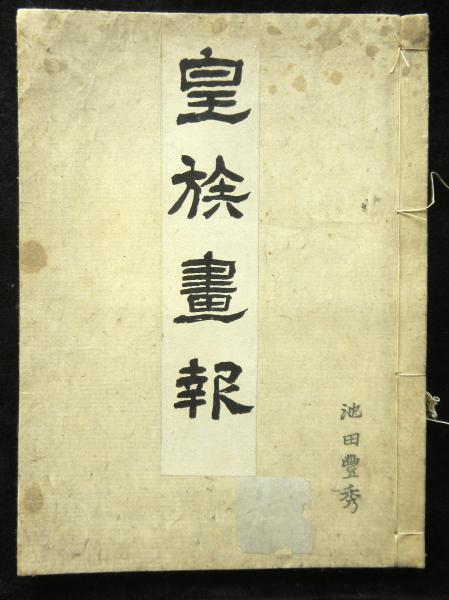 皇族畫報
池田豐秀